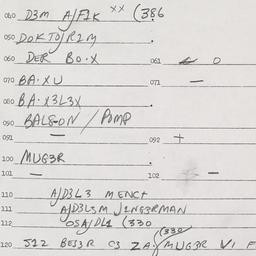 040 D3M A/F1K xx (386
050 DOKTO/R1M .
060 DER BO·X 061 0
070 BA·XU 071 —
080 BA·X3L3X .
090 BALGON / POMP
091 — 092 +
100 MUG3R .
101 — 102 —
110 A/D3L3 MENCH
111 A/D3L3M J1NG3RMAN
112 OSA/DL1 (330
120 J12 BES3R C3 ZA MUG3R V1 F
(330